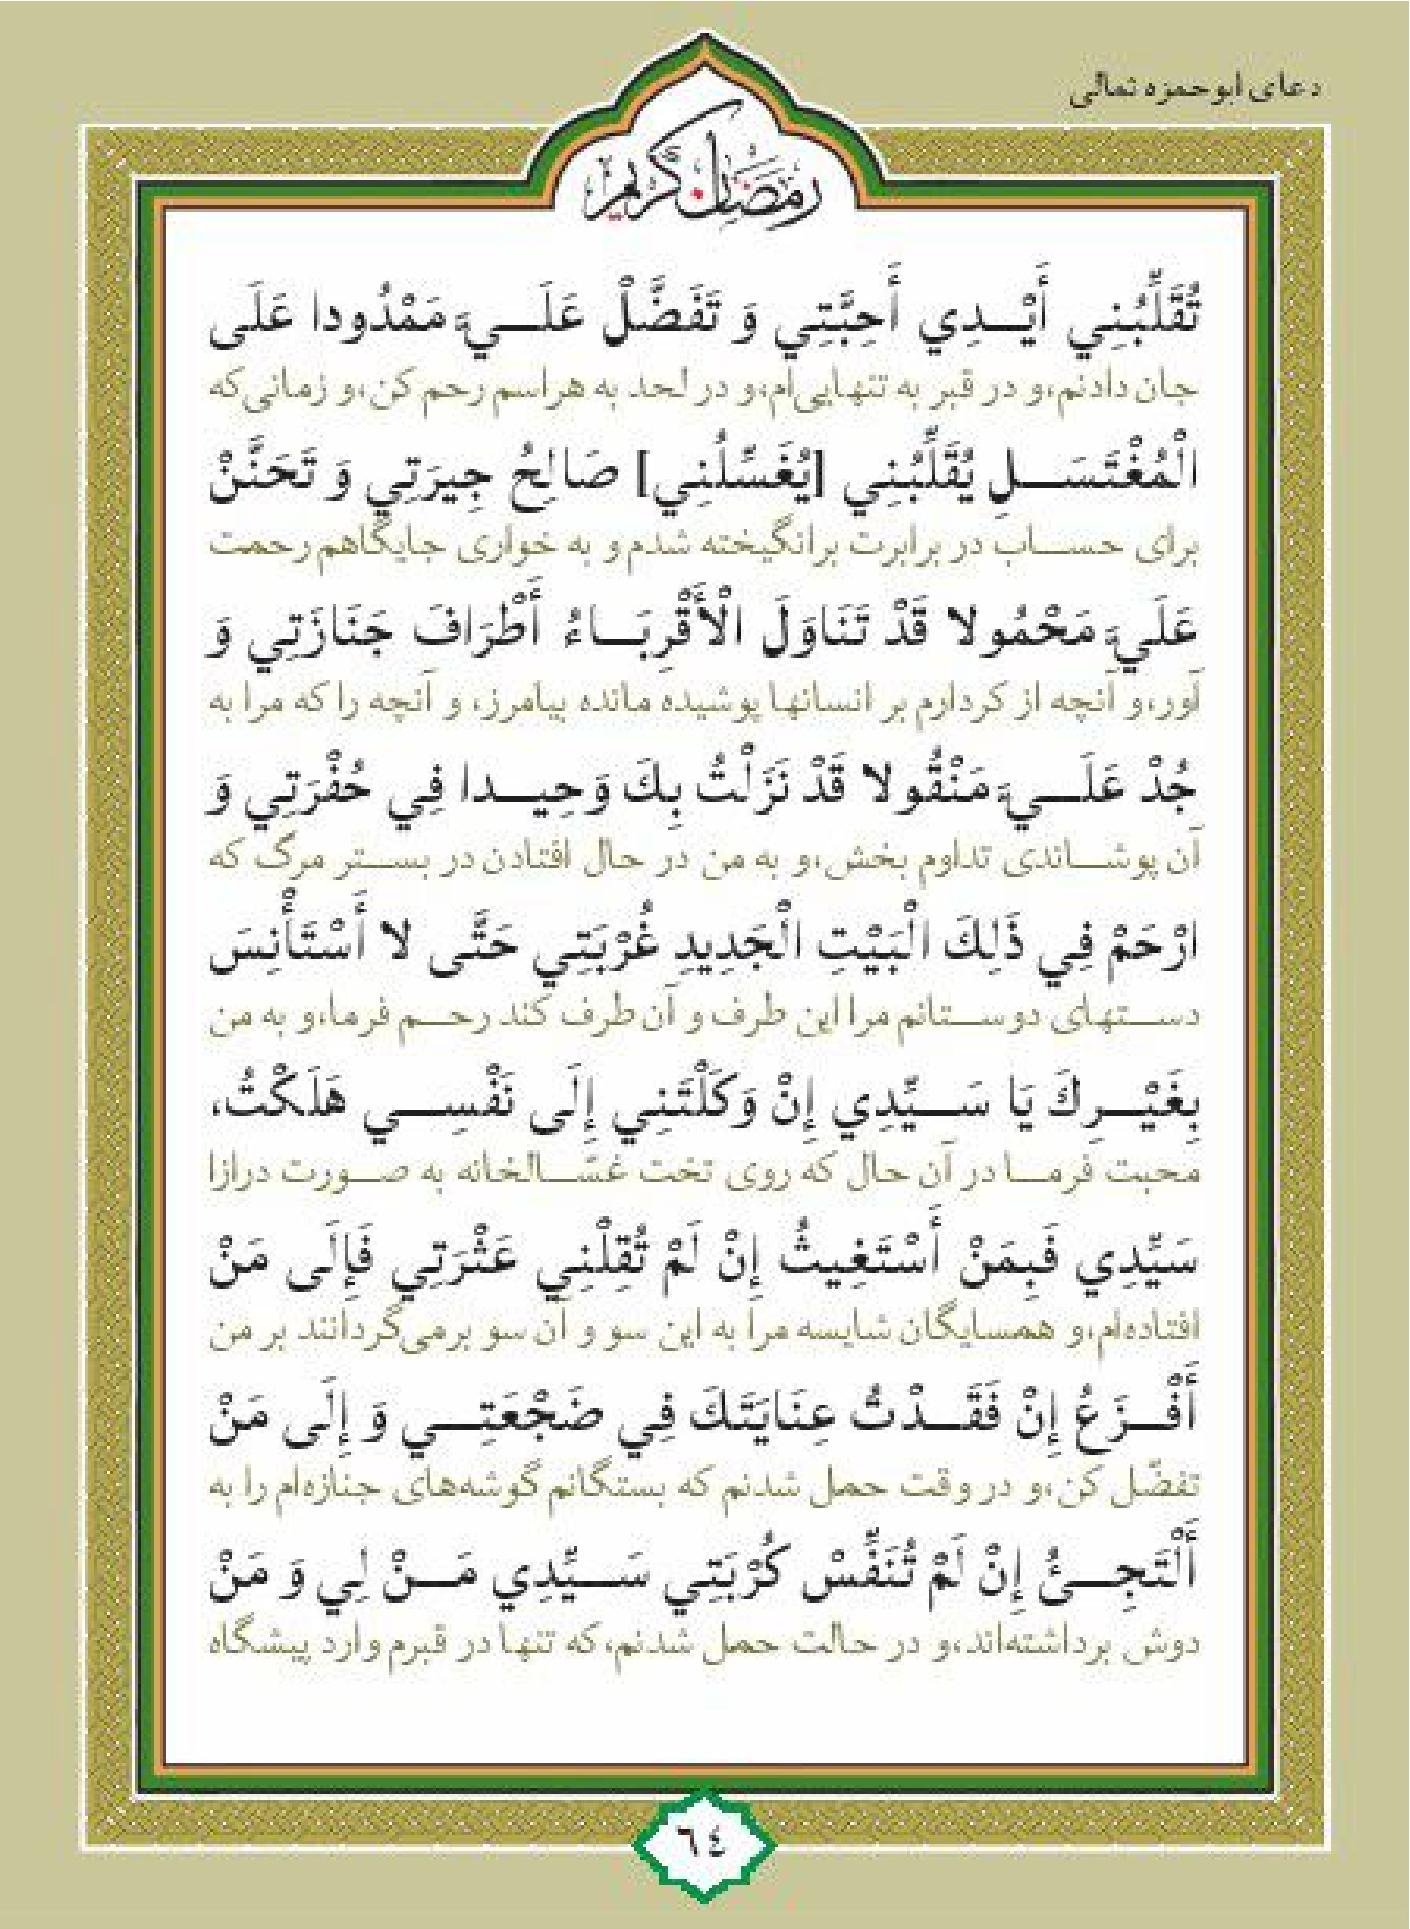 دعای ابوحمزه ثمالی
رمضان كريم
تُقَلِّبُنِي أَيْدِي أَحِبَّتِي وَ تَفَضَّلْ عَلَيَّ مَمْدُودا عَلَى
جان دادنم،و در قبر به تنهایی‌ام،و در لحد به هراسم رحم کن،و زمانی‌که
الْمُغْتَسَلِ يُقَلِّبُنِي [يُغَسِّلُنِي] صَالِحُ جِيرَتِي وَ تَحَنَّنْ
برای حساب در برابرت برانگیخته شدم و به خواری جایگاهم رحمت
عَلَيَّ مَحْمُولا قَدْ تَنَاوَلَ الْأَقْرِبَاءُ أَطْرَافَ جَنَازَتِي وَ
آور،و آنچه از کردارم بر انسانها پوشیده مانده بیامرز، و آنچه را که مرا به
جُدْ عَلَيَّ مَنْقُولا قَدْ نَزَلْتُ بِكَ وَحِيدا فِي حُفْرَتِي وَ
آن پوشاندی تداوم بخش،و به من در حال افتادن در بستر مرگ که
ارْحَمْ فِي ذَلِكَ الْبَيْتِ الْجَدِيدِ غُرْبَتِي حَتَّى لا أَسْتَأْنِسَ
دستهای دوستانم مرا این طرف و آن طرف کند رحم فرما،و به من
بِغَيْرِكَ يَا سَيِّدِي إِنْ وَكَلْتَنِي إِلَى نَفْسِي هَلَكْتُ،
محبت فرما در آن حال که روی تخت غسّالخانه به صورت درازا
سَيِّدِي فَبِمَنْ أَسْتَغِيثُ إِنْ لَمْ تُقِلْنِي عَثْرَتِي فَإِلَى مَنْ
افتاده‌ام،و همسایگان شایسه مرا به این سو و آن سو برمی‌گردانند بر من
أَفْزَعُ إِنْ فَقَدْتُ عِنَايَتَكَ فِي ضَجْعَتِي وَ إِلَى مَنْ
تفضّل کن،و در وقت حمل شدنم که بستگانم گوشه‌های جنازه‌ام را به
أَلْتَجِئُ إِنْ لَمْ تُنَفِّسْ كُرْبَتِي سَيِّدِي مَنْ لِي وَ مَنْ
دوش برداشته‌اند،و در حالت حمل شدنم،که تنها در قبرم وارد پیشگاه
٦٤